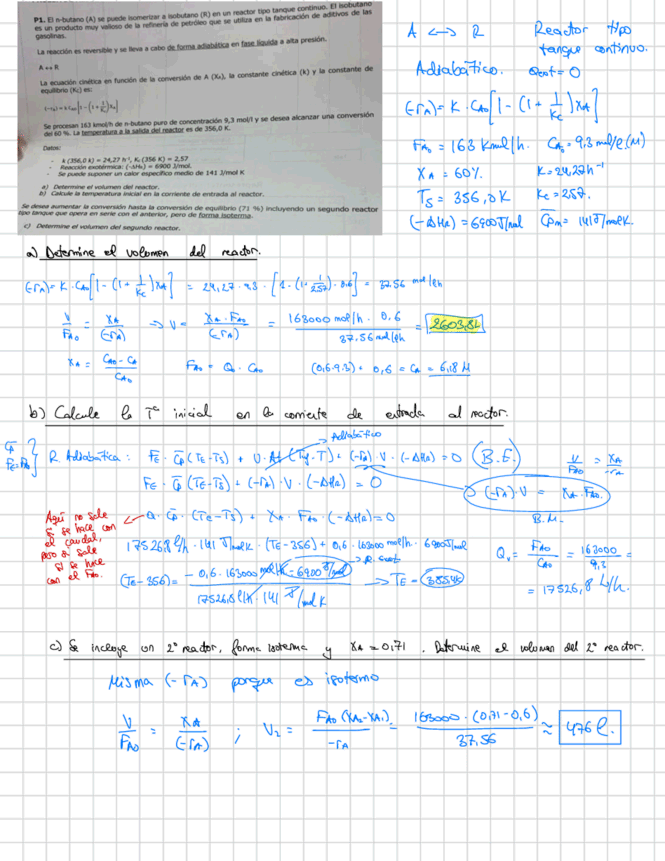 P1. El n-butano (A) se puede isomerizar a isobutano (R) en un reactor tipo tanque continuo. El isobutano
es un producto muy valioso de la refinería de petróleo que se utiliza en la fabricación de aditivos de las
gasolinas.
La reacción es reversible y se lleva a cabo de forma adiabática en fase líquida a alta presión.
A ↔ R
La ecuación cinética en función de la conversión de A (XA), la constante cinética (k) y la constante de
equilibrio (Kc) es:
(-rA) = k CA0 [1 - (1 + 1/Kc) XA]
Se procesan 163 kmol/h de n-butano puro de concentración 9,3 mol/l y se desea alcanzar una conversión
del 60 %. La temperatura a la salida del reactor es de 356,0 K.
Datos:
- k (356,0 k) = 24,27 h-1, Kc (356 K) = 2,57
- Reacción exotérmica: (-ΔHR) = 6900 J/mol.
- Se puede suponer un calor específico medio de 141 J/mol K
a) Determine el volumen del reactor.
b) Calcule la temperatura inicial en la corriente de entrada al reactor.
Se desea aumentar la conversión hasta la conversión de equilibrio (71 %) incluyendo un segundo reactor
tipo tanque que opera en serie con el anterior, pero de forma isoterma.
c) Determine el volumen del segundo reactor.
A ↔ R Reactor tipo
tanque continuo.
Adiabático. Qext = 0
(-rA) = K · CA0 [1 - (1 + 1/Kc) XA]
FA0 = 163 Kmol/h. CA0 = 9,3 mol/l (M)
XA = 60% K = 24,27 h-1
Ts = 356,0 K Kc = 2,57.
(-ΔHR) = 6900 J/mol Cpm = 141 J/molK.
a) Determine el volumen del reactor.
(-rA) = K · CA0 [1 - (1 + 1/Kc) XA] = 24,27 · 9,3 · [1 - (1 + 1/2,57) · 0,6] = 37.56 mol/lh
V/FA0 = XA/(-rA) ⇒ V = XA · FA0/(-rA) = 163000 mol/h · 0.6/37.56 mol/lh = 2603,8 L
XA = CA0 - CA/CA0 FA0 = Q0 · CA0 (0,6·9.3) + 0,6 = CA = 6,18 M
b) Calcule la Tª inicial en la corriente de entrada al reactor.
Adiabático
R. Adiabática: FE · Cp (TE - TS) + U · At (Tf - T) + (-rA) · V · (-ΔHR) = 0 (B.E.) V/FA0 = XA/-rA
FE · Cp (TE - TS) + (-rA) · V · (-ΔHR) = 0 (-rA) · V = XA · FA0.
B.M.
Aquí no sale
si se hace con
el caudal,
pero si sale
si se hace
con el FA0.
Q · Cp · (TE - TS) + XA · FA0 · (-ΔHR) = 0
17526,8 l/h · 141 J/molK · (TE - 356) + 0,6 · 163000 mol/h · 6900 J/mol
(TE - 356) = - 0,6 · 163000 mol/h · 6900 J/mol / 17526,8 l/h · 141 J/mol K → TE =
Qv = FA0/CA0 = 163000/9,3 =
= 17526,8 L/h.
c) Se incluye un 2º reactor, forma isoterma y XA = 0,71. Determine el volumen del 2º reactor.
Misma (-rA) porque es isotermo
V/FA0 = XA/(-rA) ; V2 = FA0 (XA2 - XA1)/-rA = 163000 · (0,71 - 0,6)/37,56 ≈ 476 l.